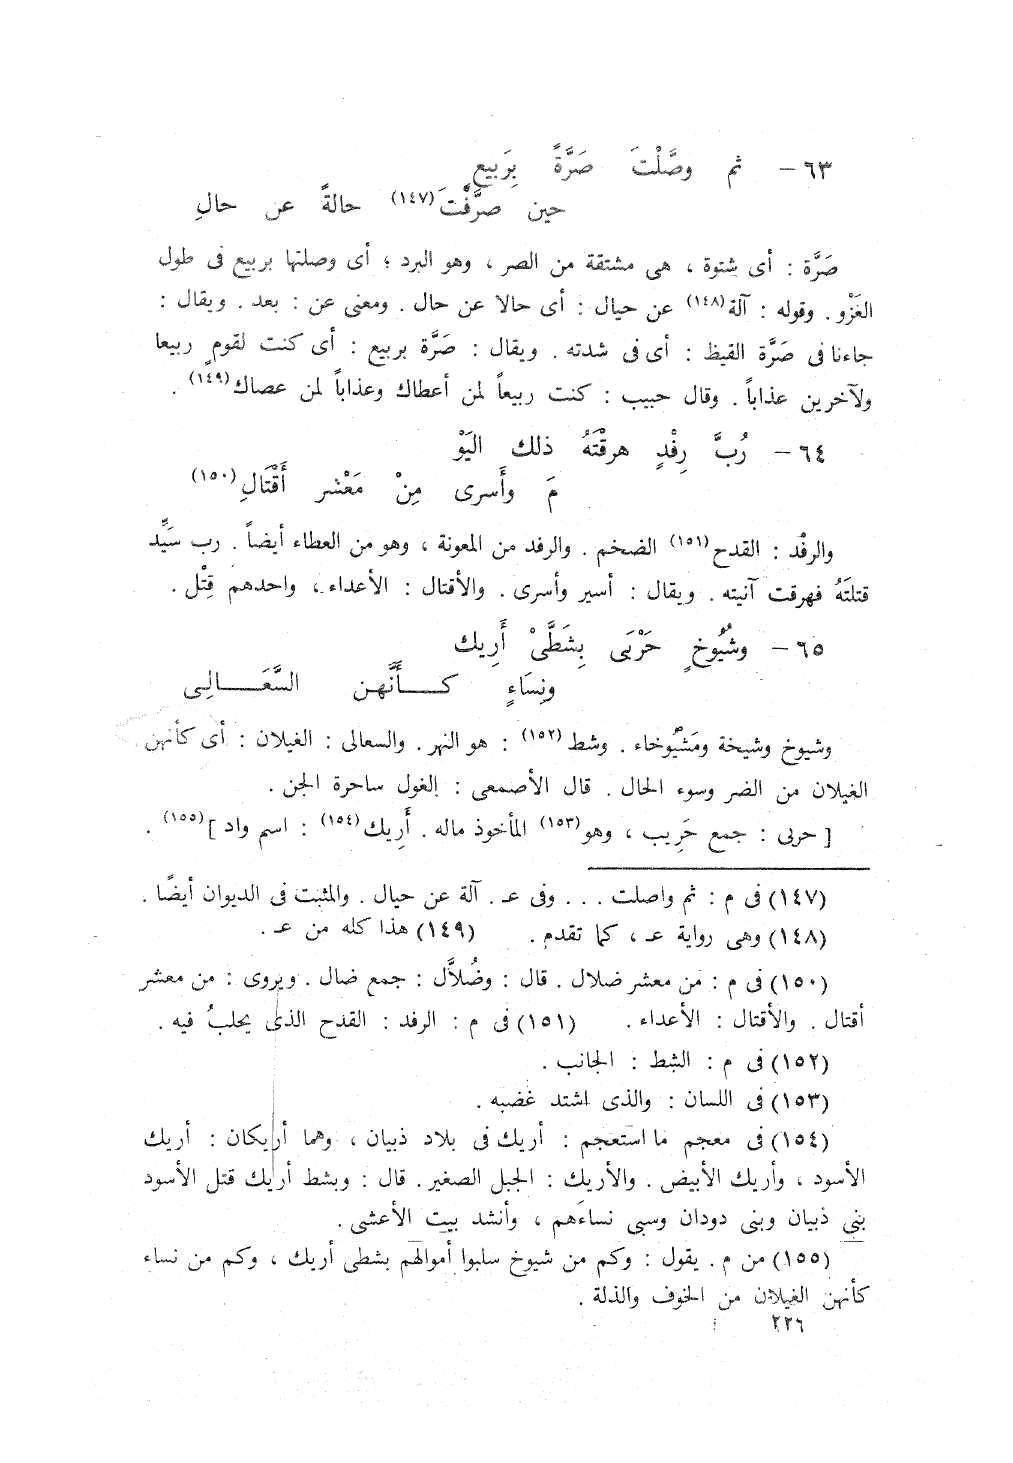 ٦٣ – ثم وصَّلْتَ صَرَّةً بِرَبيعٍ
حين صرَّفْتَ (١٤٧) حالةً عن حالِ
صَرَّة : أى شتوة ، هى مشتقة من الصر ، وهو البرد ؛ أى وصلتها بربيع فى طول
الغَزْو . وقوله : آلة (١٤٨) عن حيال : أى حالا عن حال . ومعنى عن : بعد . ويقال :
جاءنا فى صَرَّة القيظ : أى فى شدته . ويقال : صَرَّة بربيع : أى كنت لقومٍ ربيعا
ولآخرين عذاباً . وقال حبيب : كنت ربيعاً لمن أعطاك وعذاباً لمن عصاك (١٤٩) .
٦٤ – رُبَّ رِفْدٍ هرقْتَهُ ذلك اليَوْ
مَ وأَسرى مِنْ مَعْشر أَقْتَالِ (١٥٠)
والرفْد : القدح (١٥١) الضخم . والرفد من المعونة ، وهو من العطاء أيضاً . رب سَيِّد
قتلتَهُ فهرقت آنيته . ويقال : أسير وأسرى . والأقتال : الأعداء ، واحدهم قِتْل .
٦٥ – وشُيُوخٍ حَرْبَى بِشَطَّىْ أَرِيك
ونِسَاءٍ كــأَنَّهن السَّعَــالِى
وشيوخ وشيخة ومَشْيُوخاء . وشط (١٥٢) : هو النهر . والسعالى : الغيلان : أى كأنهن
الغيلان من الضر وسوء الحال . قال الأصمعى : الغول ساحرة الجن .
[ حربى : جمع حَرِيب ، وهو (١٥٣) المأخوذ ماله . أَرِيك (١٥٤) : اسم واد ] (١٥٥) .
(١٤٧) فى م : ثم واصلت . . . وفى عـ . آلة عن حيال . والمثبت فى الديوان أيضًا .
(١٤٨) وهى رواية عـ ، كما تقدم . (١٤٩) هذا كله من عـ .
(١٥٠) فى م : من معشر ضلال . قال : وضُلاَّل : جمع ضال . ويروى : من معشر
أقتال . والأقتال : الأعداء . (١٥١) فى م : الرفد : القدح الذى يحلبُ فيه .
(١٥٢) فى م : الشط : الجانب .
(١٥٣) فى اللسان : والذى اشتد غضبه .
(١٥٤) فى معجم ما استعجم : أريك فى بلاد ذبيان ، وهما أريكان : أريك
الأسود ، وأريك الأبيض . والأريك : الجبل الصغير . قال : وبشط أريك قتل الأسود
بنى ذبيان وبنى دودان وسبى نساءهم ، وأنشد بيت الأعشى .
(١٥٥) من م . يقول : وكم من شيوخ سلبوا أموالهم بشطى أريك ، وكم من نساء
كأنهن الغيلان من الخوف والذلة .
٢٢٦